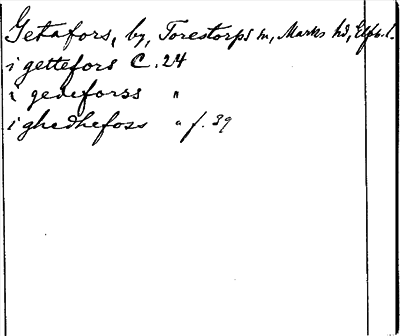 Getafors, by, Torestorps sn, Marks hd, Elfsb. l.
i gettefors C. 24
i gedeforss "
i ghedhefoss " f. 39